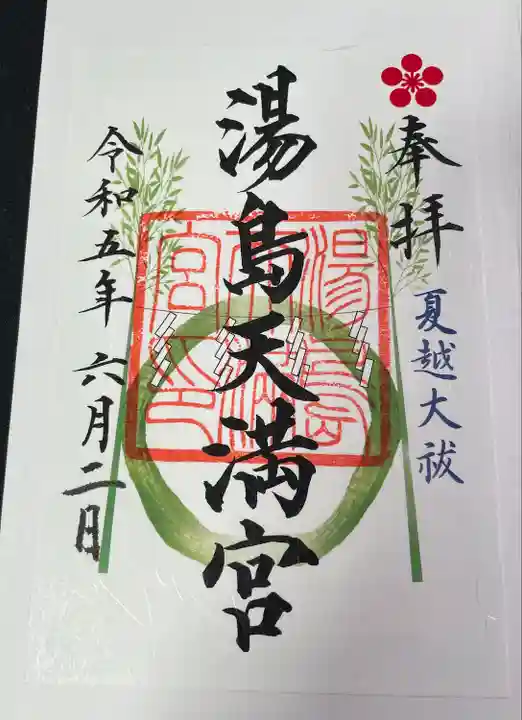 奉拝
夏越大祓
湯島天満宮
湯島
天満
宮印
令和五年 六月二日